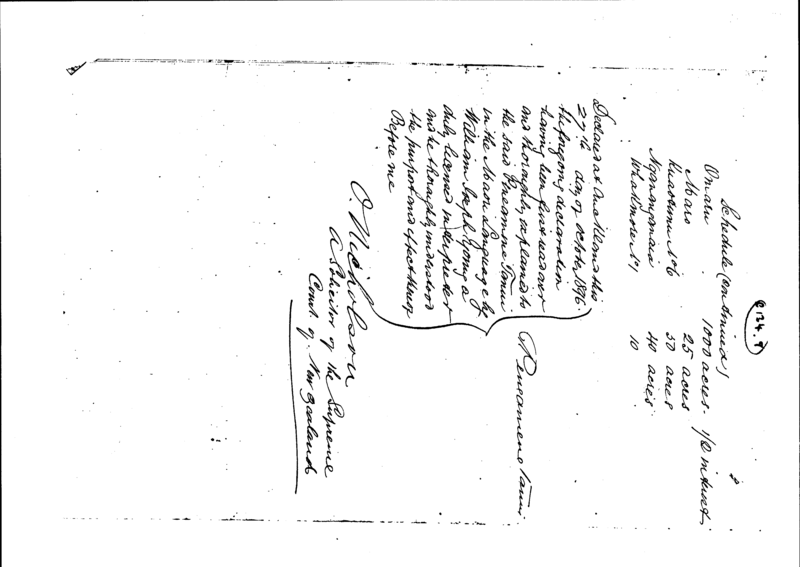 2
Schedule (continued)
Omaru 1000 acres. 1/2 interest
Maro 25 acres
No 6 50 acres
40 acres
No 1 10
Declared at Auckland this
27th day of October 1896.
the foregoing declaration
having been first read over
and thoroughly explained to
the said Tamui
in the Maori Language by
William Joseph Young a
duly licensed interpreter
and he thoroughly understood
the purport and effect thereof
Before me
Tamui
O. Nicholson
A Solicitor of the Supreme
Court of New Zealand